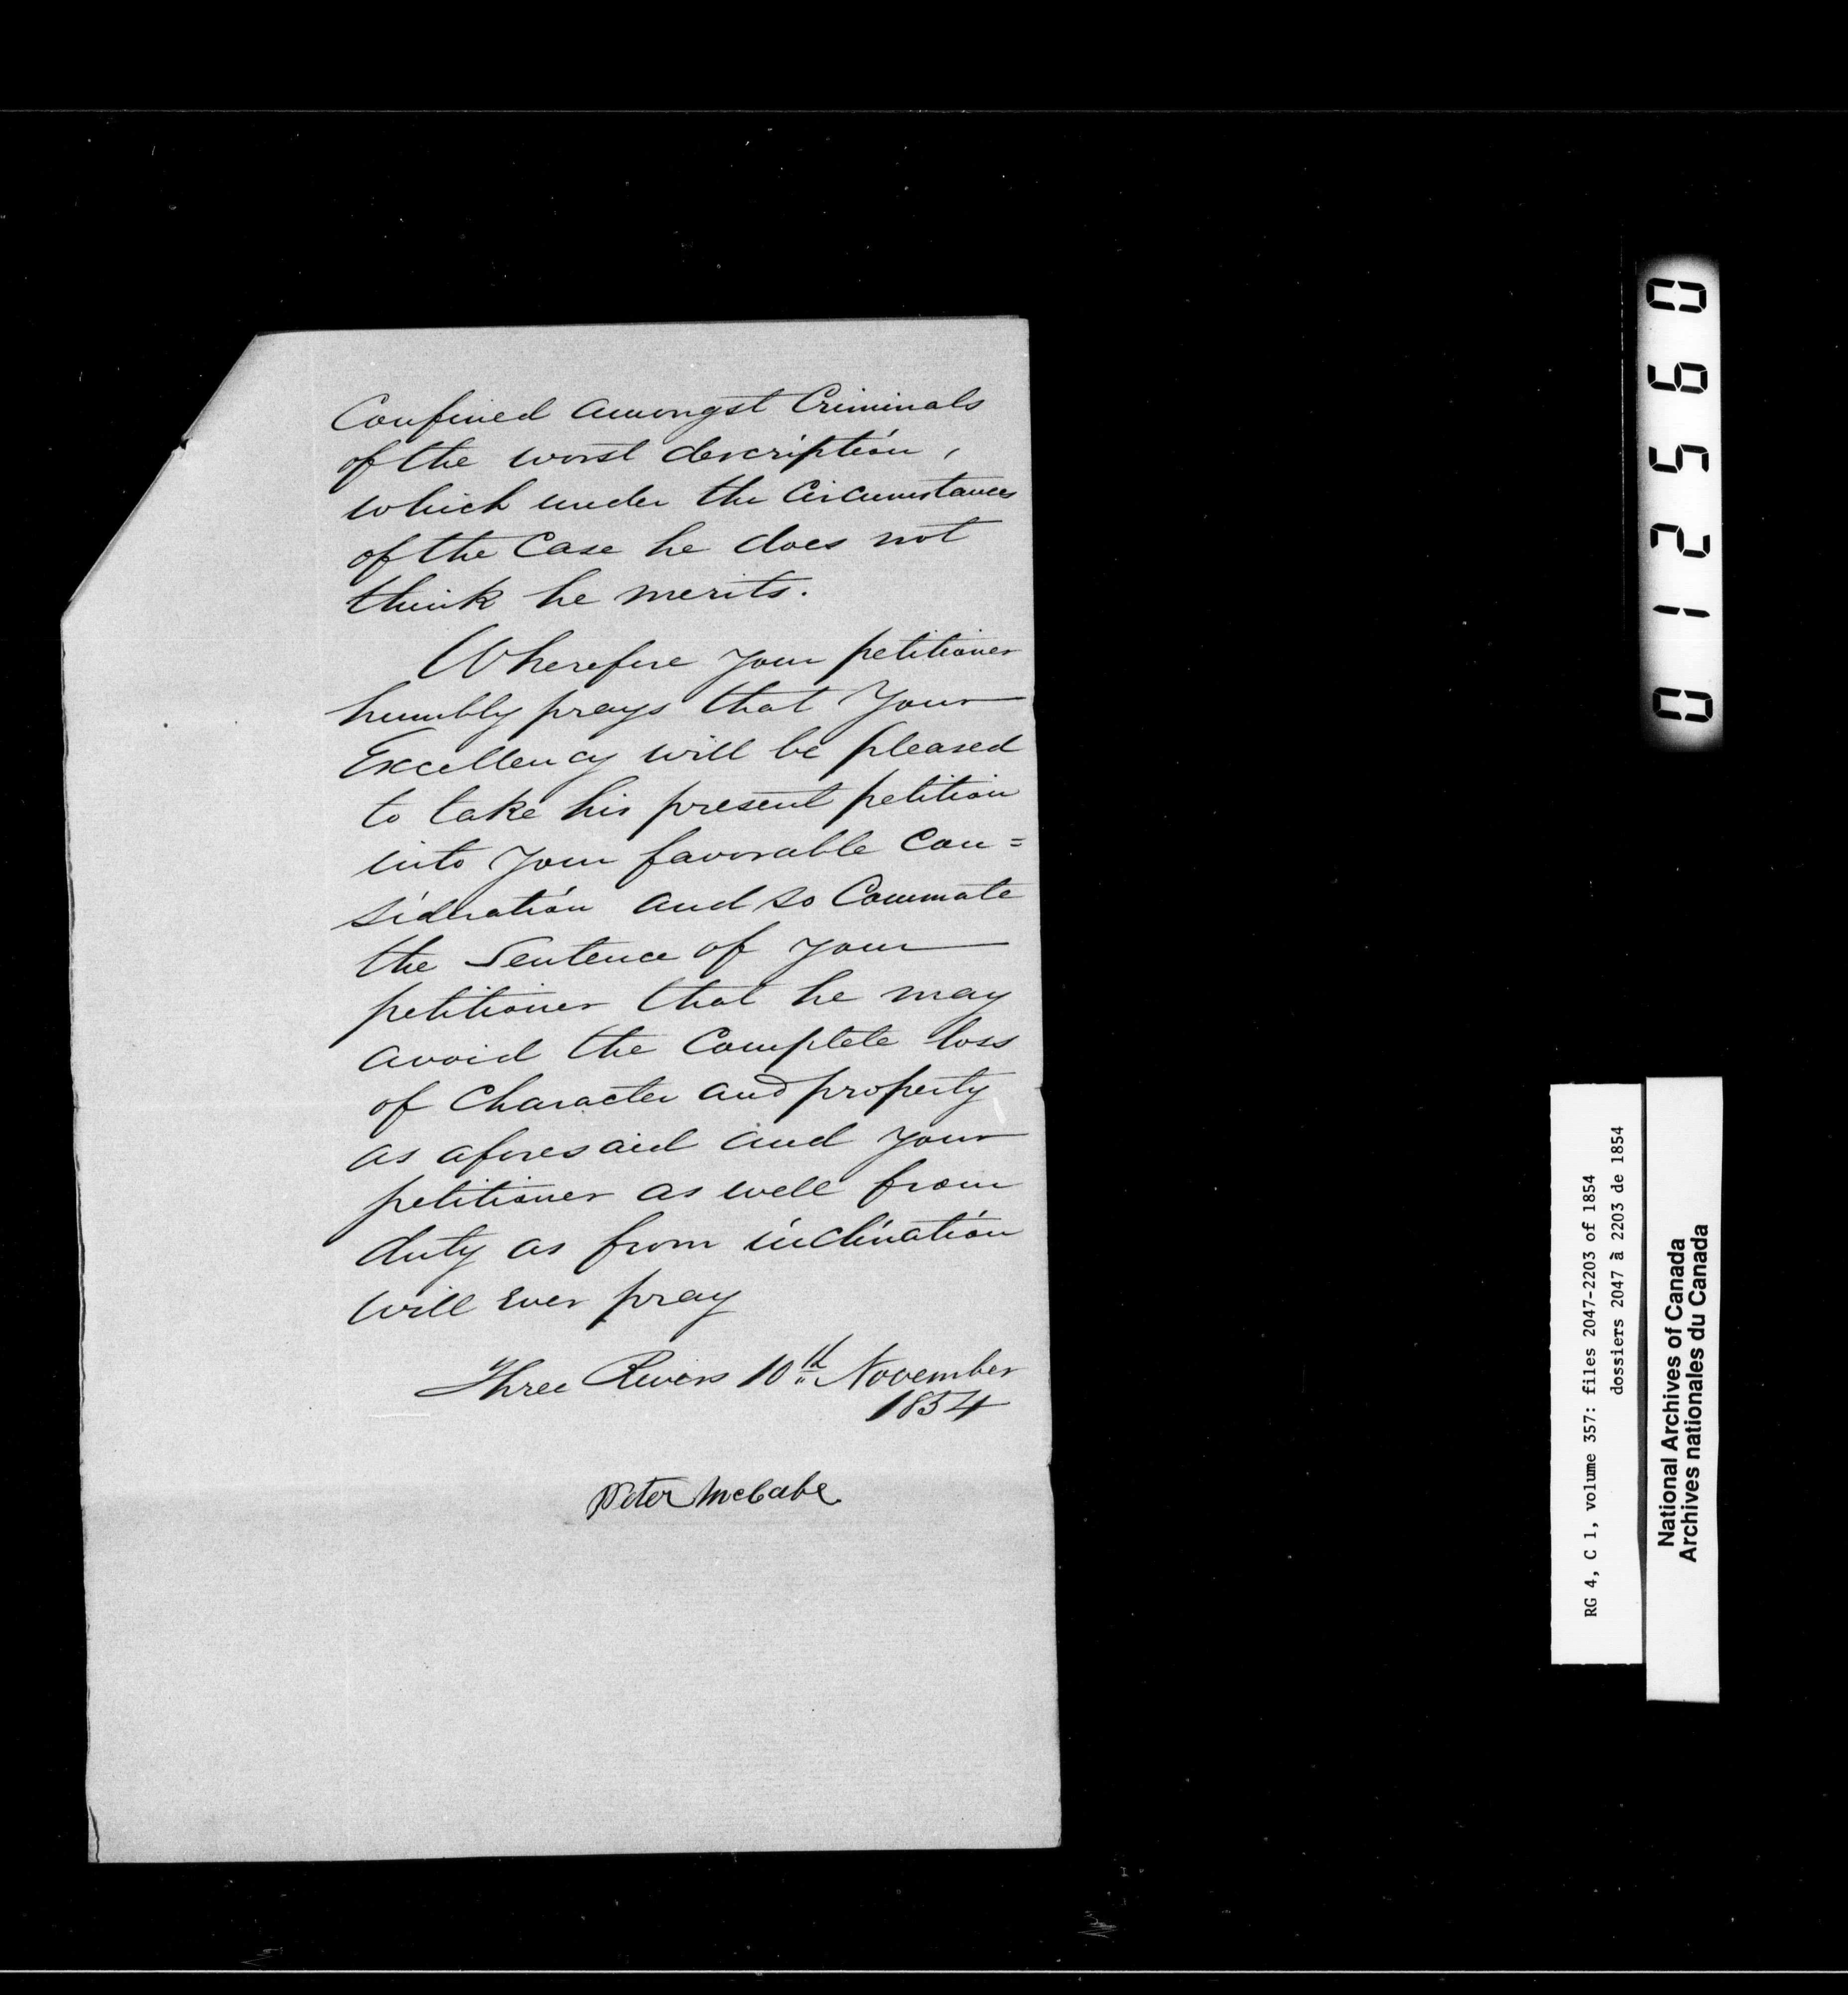 Confined amongst Criminals
of the worst description,
which under the Circumstances
of the Case he does not
think he merits.
Wherefore your petitioner
humbly prays that Your
Excellency will be pleased
to take his present petition
into your favorable Con=
sideration and so Commute
the Sentence of your
petitioner that he may
avoid the Complete loss
of Character and property
as aforesaid and your
petitioner as well from
duty as from inclination
will ever pray
Three Rivers 10th November
1854
Peter McCabe
012560
RG 4, C 1, volume 357: files 2047-2203 of 1854
dossiers 2047 à 2203 de 1854
National Archives of Canada
Archives nationales du Canada